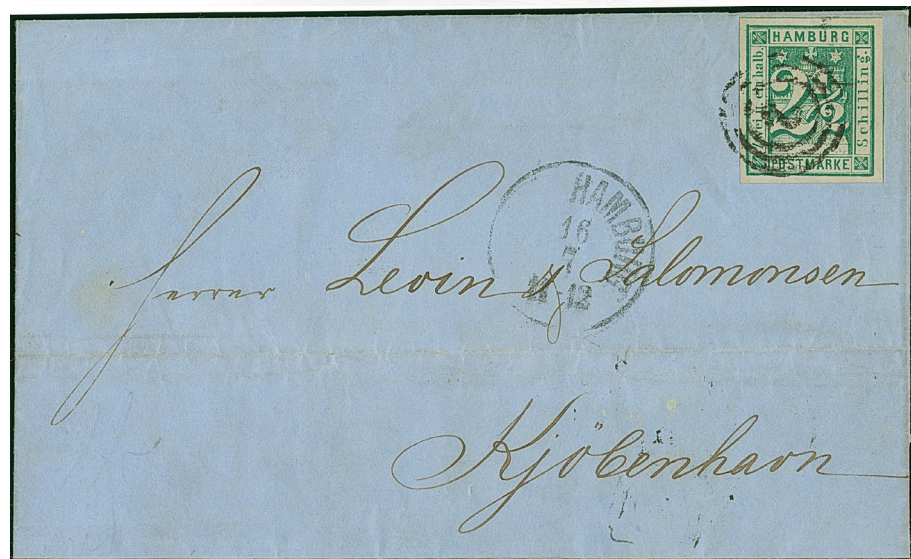 HAMBURG
Zwei u. ein halb.
2½
Schilling.
POSTMARKE
HAMBURG
16
12
Herrer Levin & Salomonsen
Kjöbenhavn